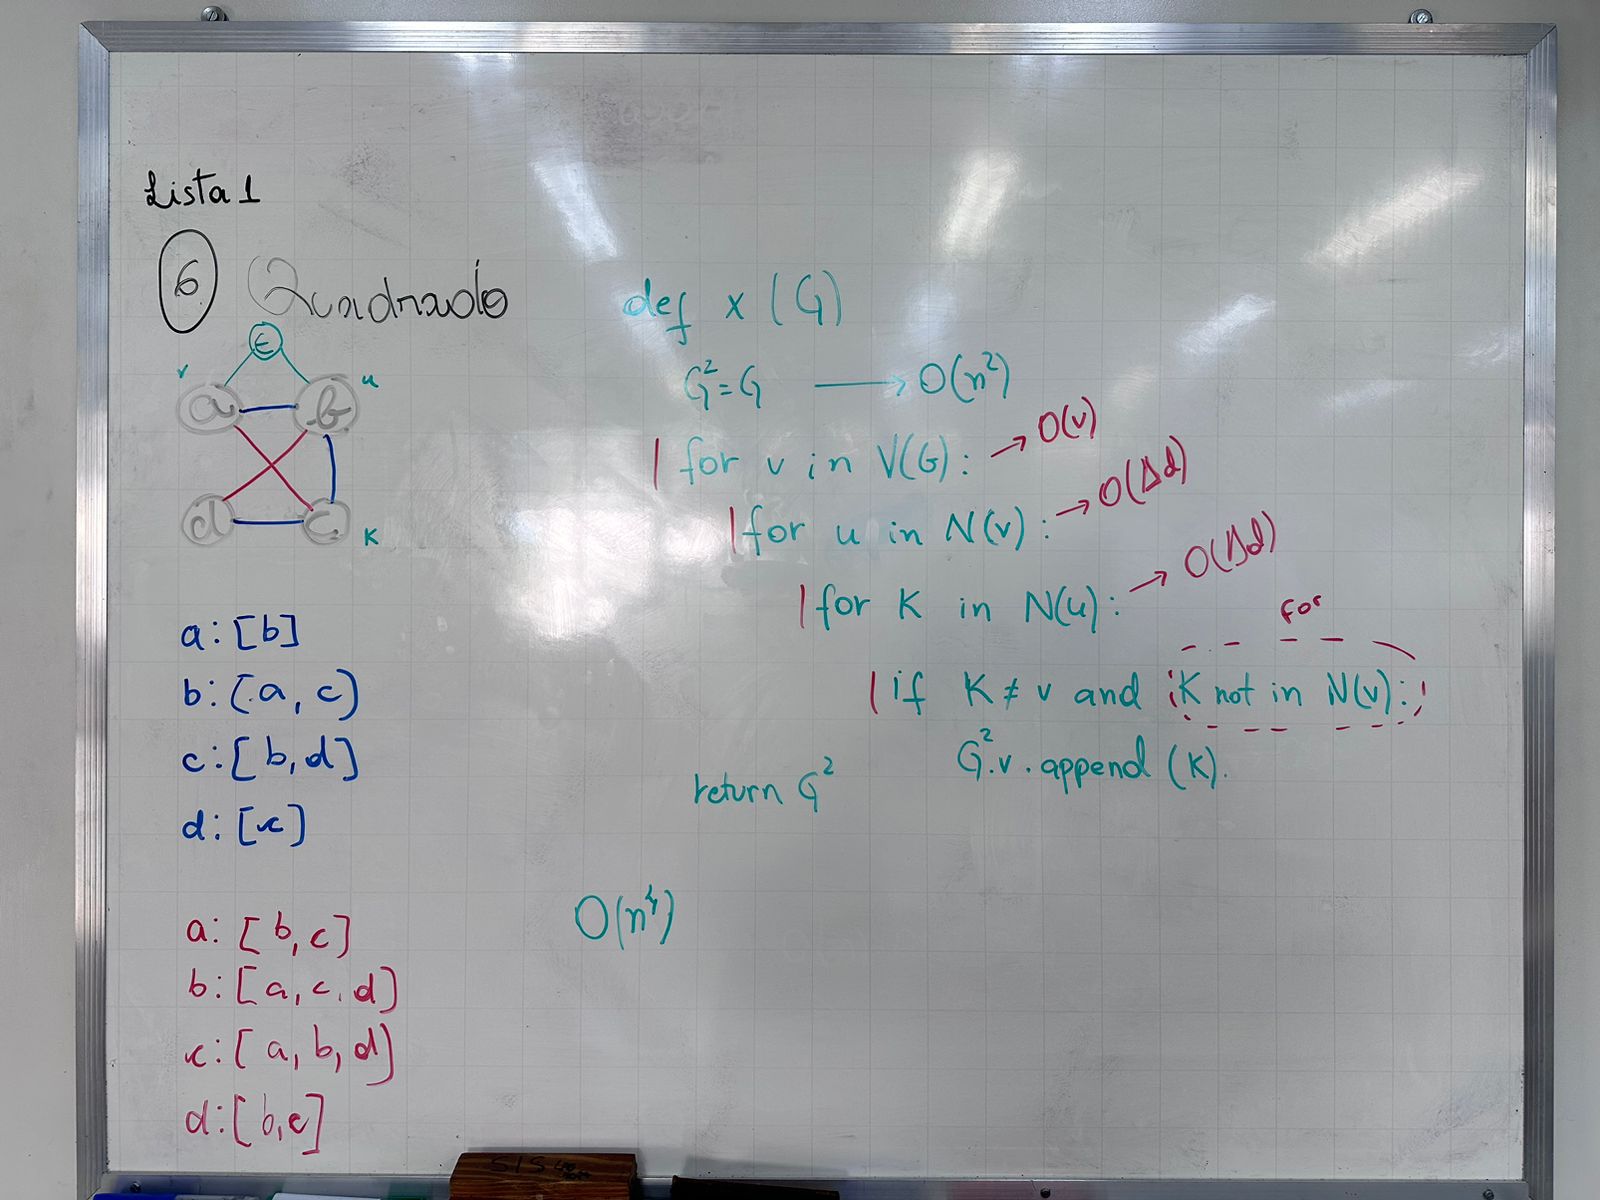 Lista 1
6 Quadrado
E
v
u
a
b
d
c
K
a: [b]
b: (a, c)
c: [b, d]
d: [c]
a: [b, c]
b: [a, c, d]
c: [a, b, d]
d: [b, c]
def x (G)
G²=G → O(n²)
for v in V(G): → O(v)
for u in N(v): → O(Δd)
for K in N(u): → O(Δd)
for
if K ≠ v and K not in N(v):
G².v.append (K).
return G²
O(n⁴)